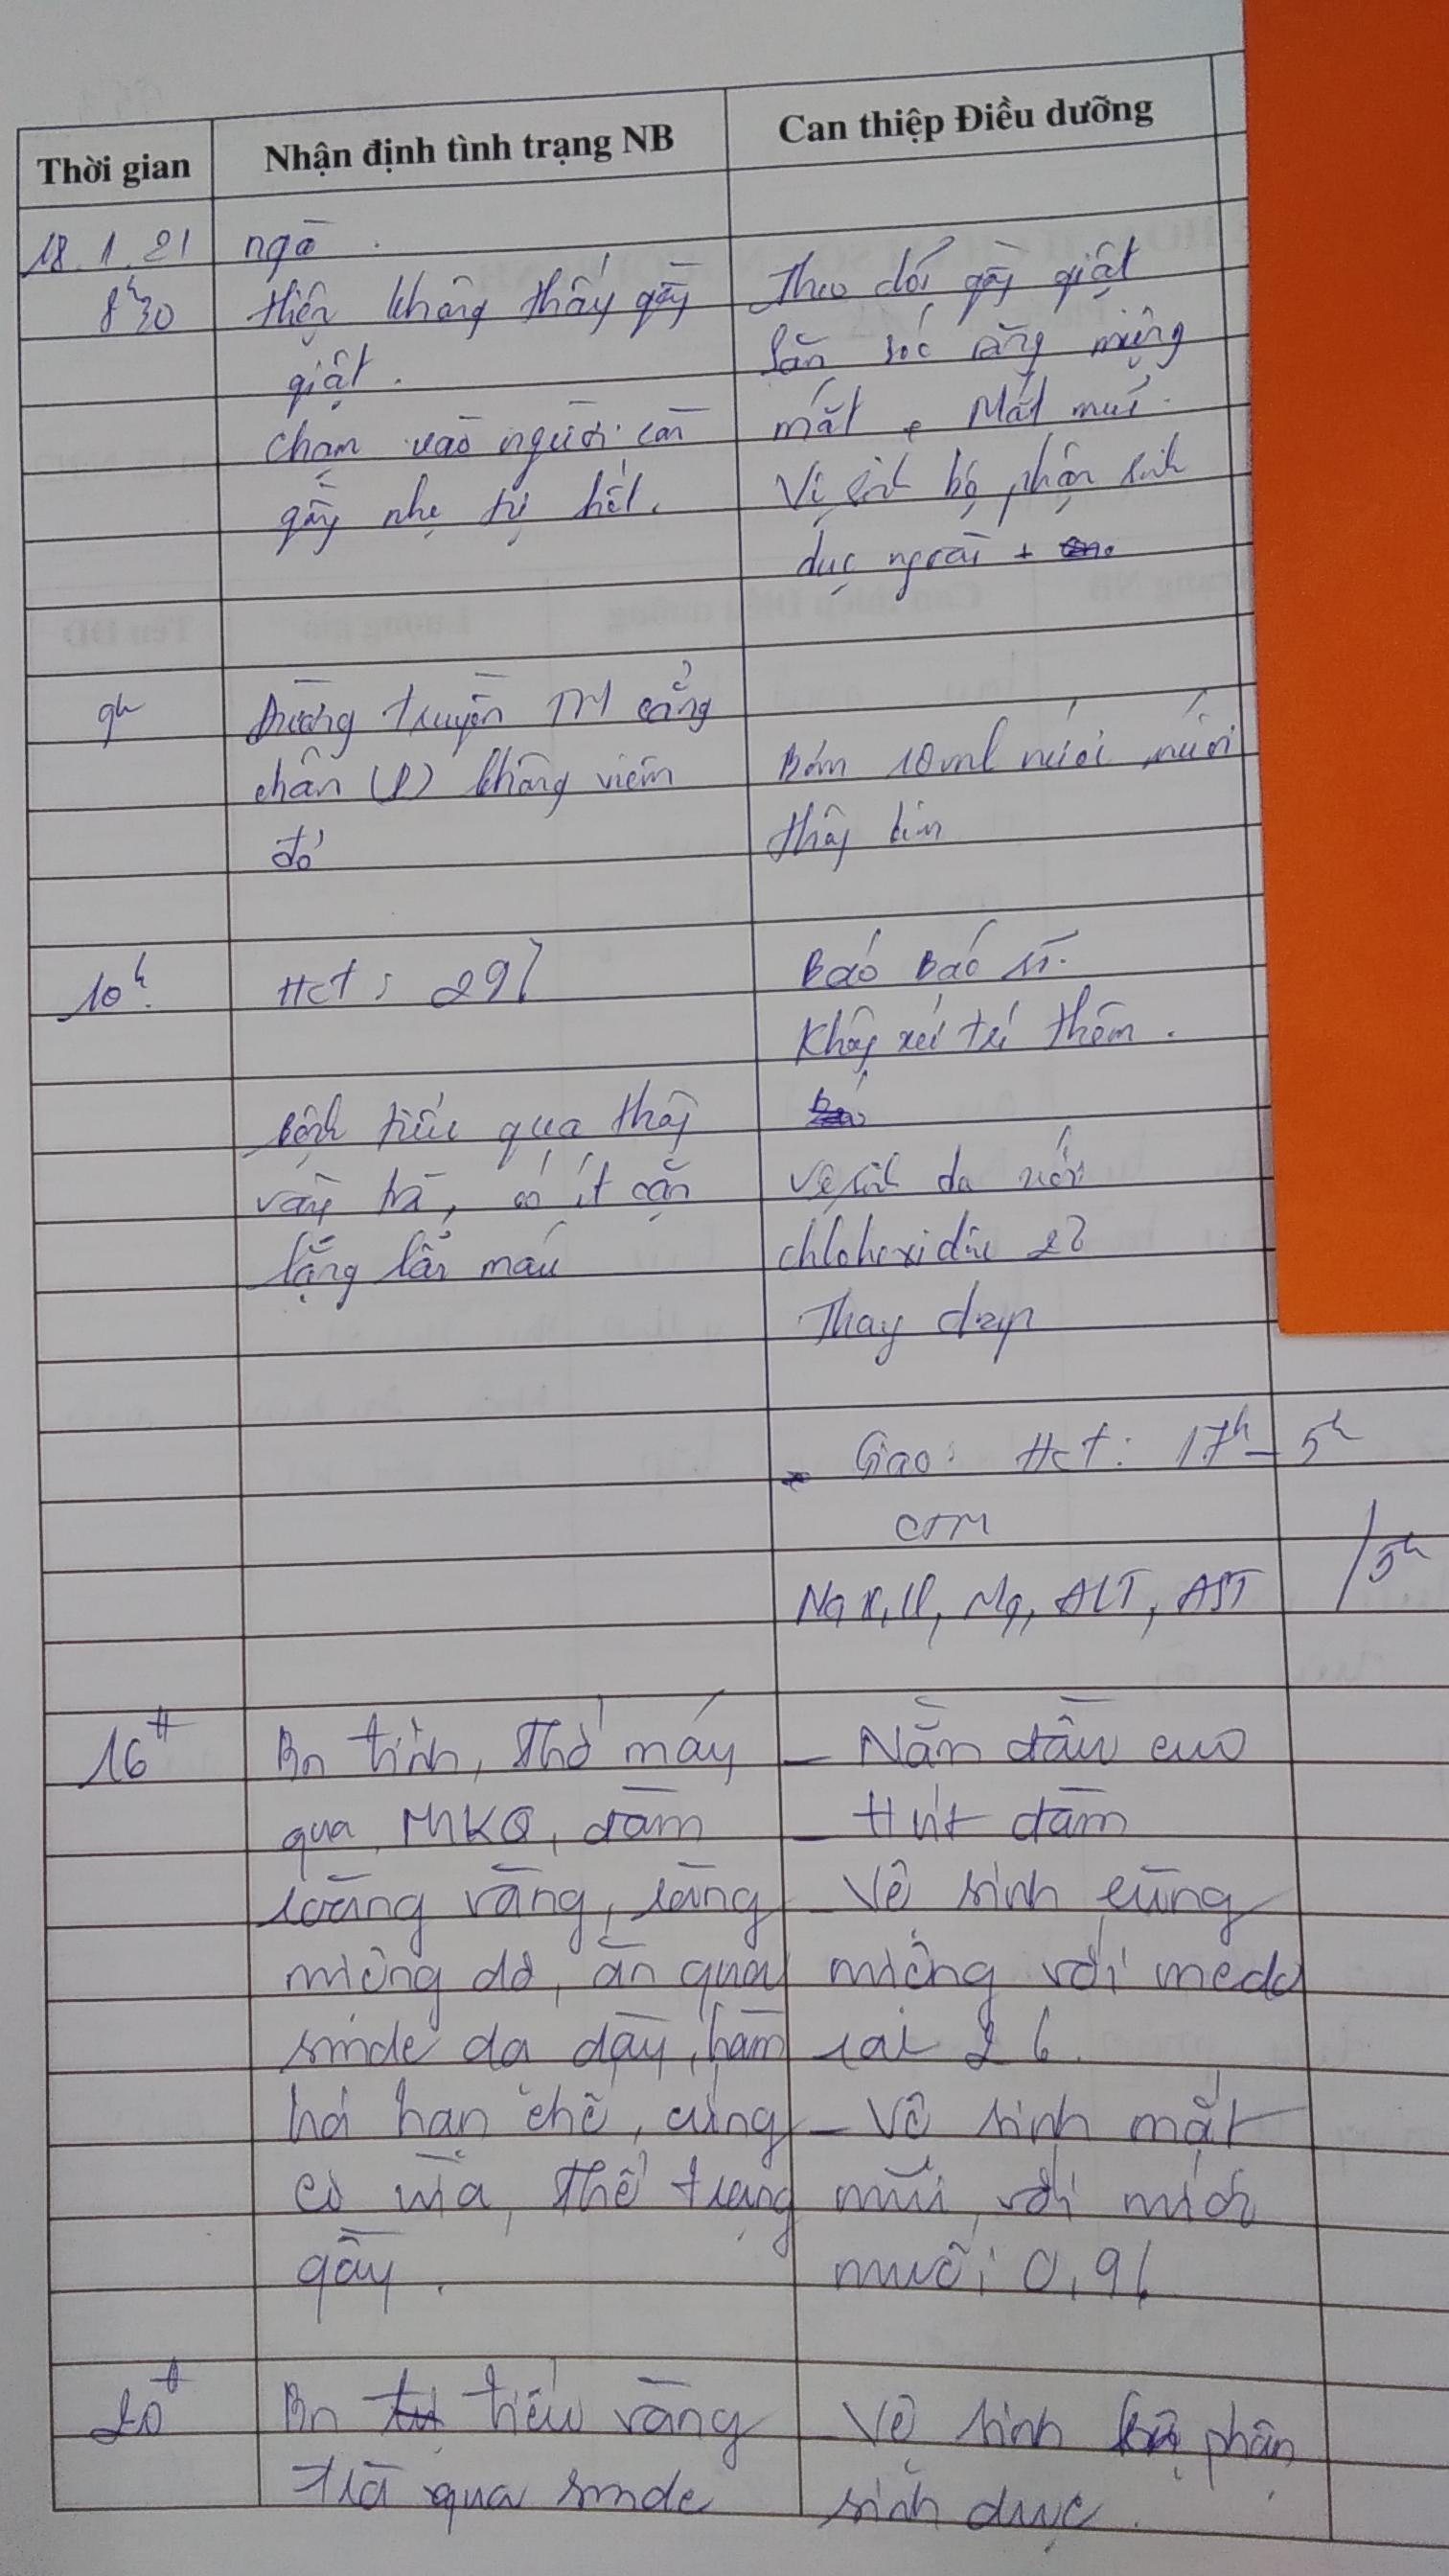 Thời gian
Nhận định tình trạng NB
Can thiệp Điều dưỡng
18.1.21
8h30
hiện không thấy gồng
giật.
chạm vào người còn
gồng nhẹ tự hết.
Theo dõi gồng giật
răng miệng
mắt, Mắt mũi.
Vệ sinh bộ phận sinh
dục ngoài +
9h
Đường truyền TM cẳng
chân (P) không viêm
đỏ
Bơm 10ml nước muối
thông kim
10h
Hct: 29%
Báo bác sĩ.
Không xử trí thêm.
Bệnh tiểu qua thông
vàng trà, có ít cặn
lắng lẫn máu
vệ sinh da với
chlohexidin 2%
Thay drap
- Giao: Hct: 17h - 5h
CTM
Na, K, Cl, Mg, ALT, AST /5h
16h
Bn tỉnh, thở máy
qua MKQ, đàm
loãng vàng, răng
miệng dơ, ăn qua
sonde dạ dày, hàm
há hạn chế, cứng
cơ vừa, thể trạng
gầy.
- Nằm đầu cao
- Hút đàm
- Vệ sinh răng
miệng với meda
- Vệ sinh mắt
mũi với nước
muối 0,9%
20h
Bn tiểu vàng
trà qua sonde
- Vệ sinh bộ phận
sinh dục.